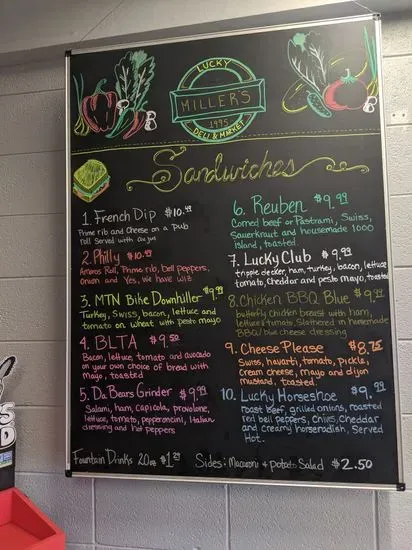 LUCKY
MILLER'S
1995
DELI & MARKET
Sandwiches
1. French Dip $10.49
Prime rib and Cheese on a Pub
roll Served with au jus
2. Philly $10.49
Amoros Roll, Prime rib, bell peppers,
Onion and Yes, We have wiz
3. MTN Bike Downhiller $9.99
Turkey, Swiss, bacon, lettuce and
tomato on wheat with pesto mayo
4. BLTA $9.50
Bacon, lettuce, tomato and avocado
on your own choice of bread with
mayo, toasted
5. Da Bears Grinder $9.99
Salami, ham, capicola, provolone,
lettuce, tomato, pepperoncini, Italian
dressing and hot peppers
6. Reuben $9.99
Corned beef or Pastrami, Swiss,
Sauerkraut and housemade 1000
island, toasted
7. Lucky Club $9.99
triple decker, ham, turkey, bacon, lettuce
tomato, cheddar and pesto mayo, toasted
8. Chicken BBQ Blue $9.99
butterfly chicken breast with ham,
lettuce & tomato, Slathered in homemade
BBQ/blue cheese dressing
9. Cheese Please $8.75
Swiss, havarti, tomato, pickle,
cream cheese, mayo and dijon
mustard, toasted
10. Lucky Horseshoe $9.99
roast beef, grilled onions, roasted
red bell peppers, Chives, Cheddar
and creamy horseradish, Served
Hot.
Fountain Drinks 20oz $1.29 Sides: Macaroni + potato Salad $2.50